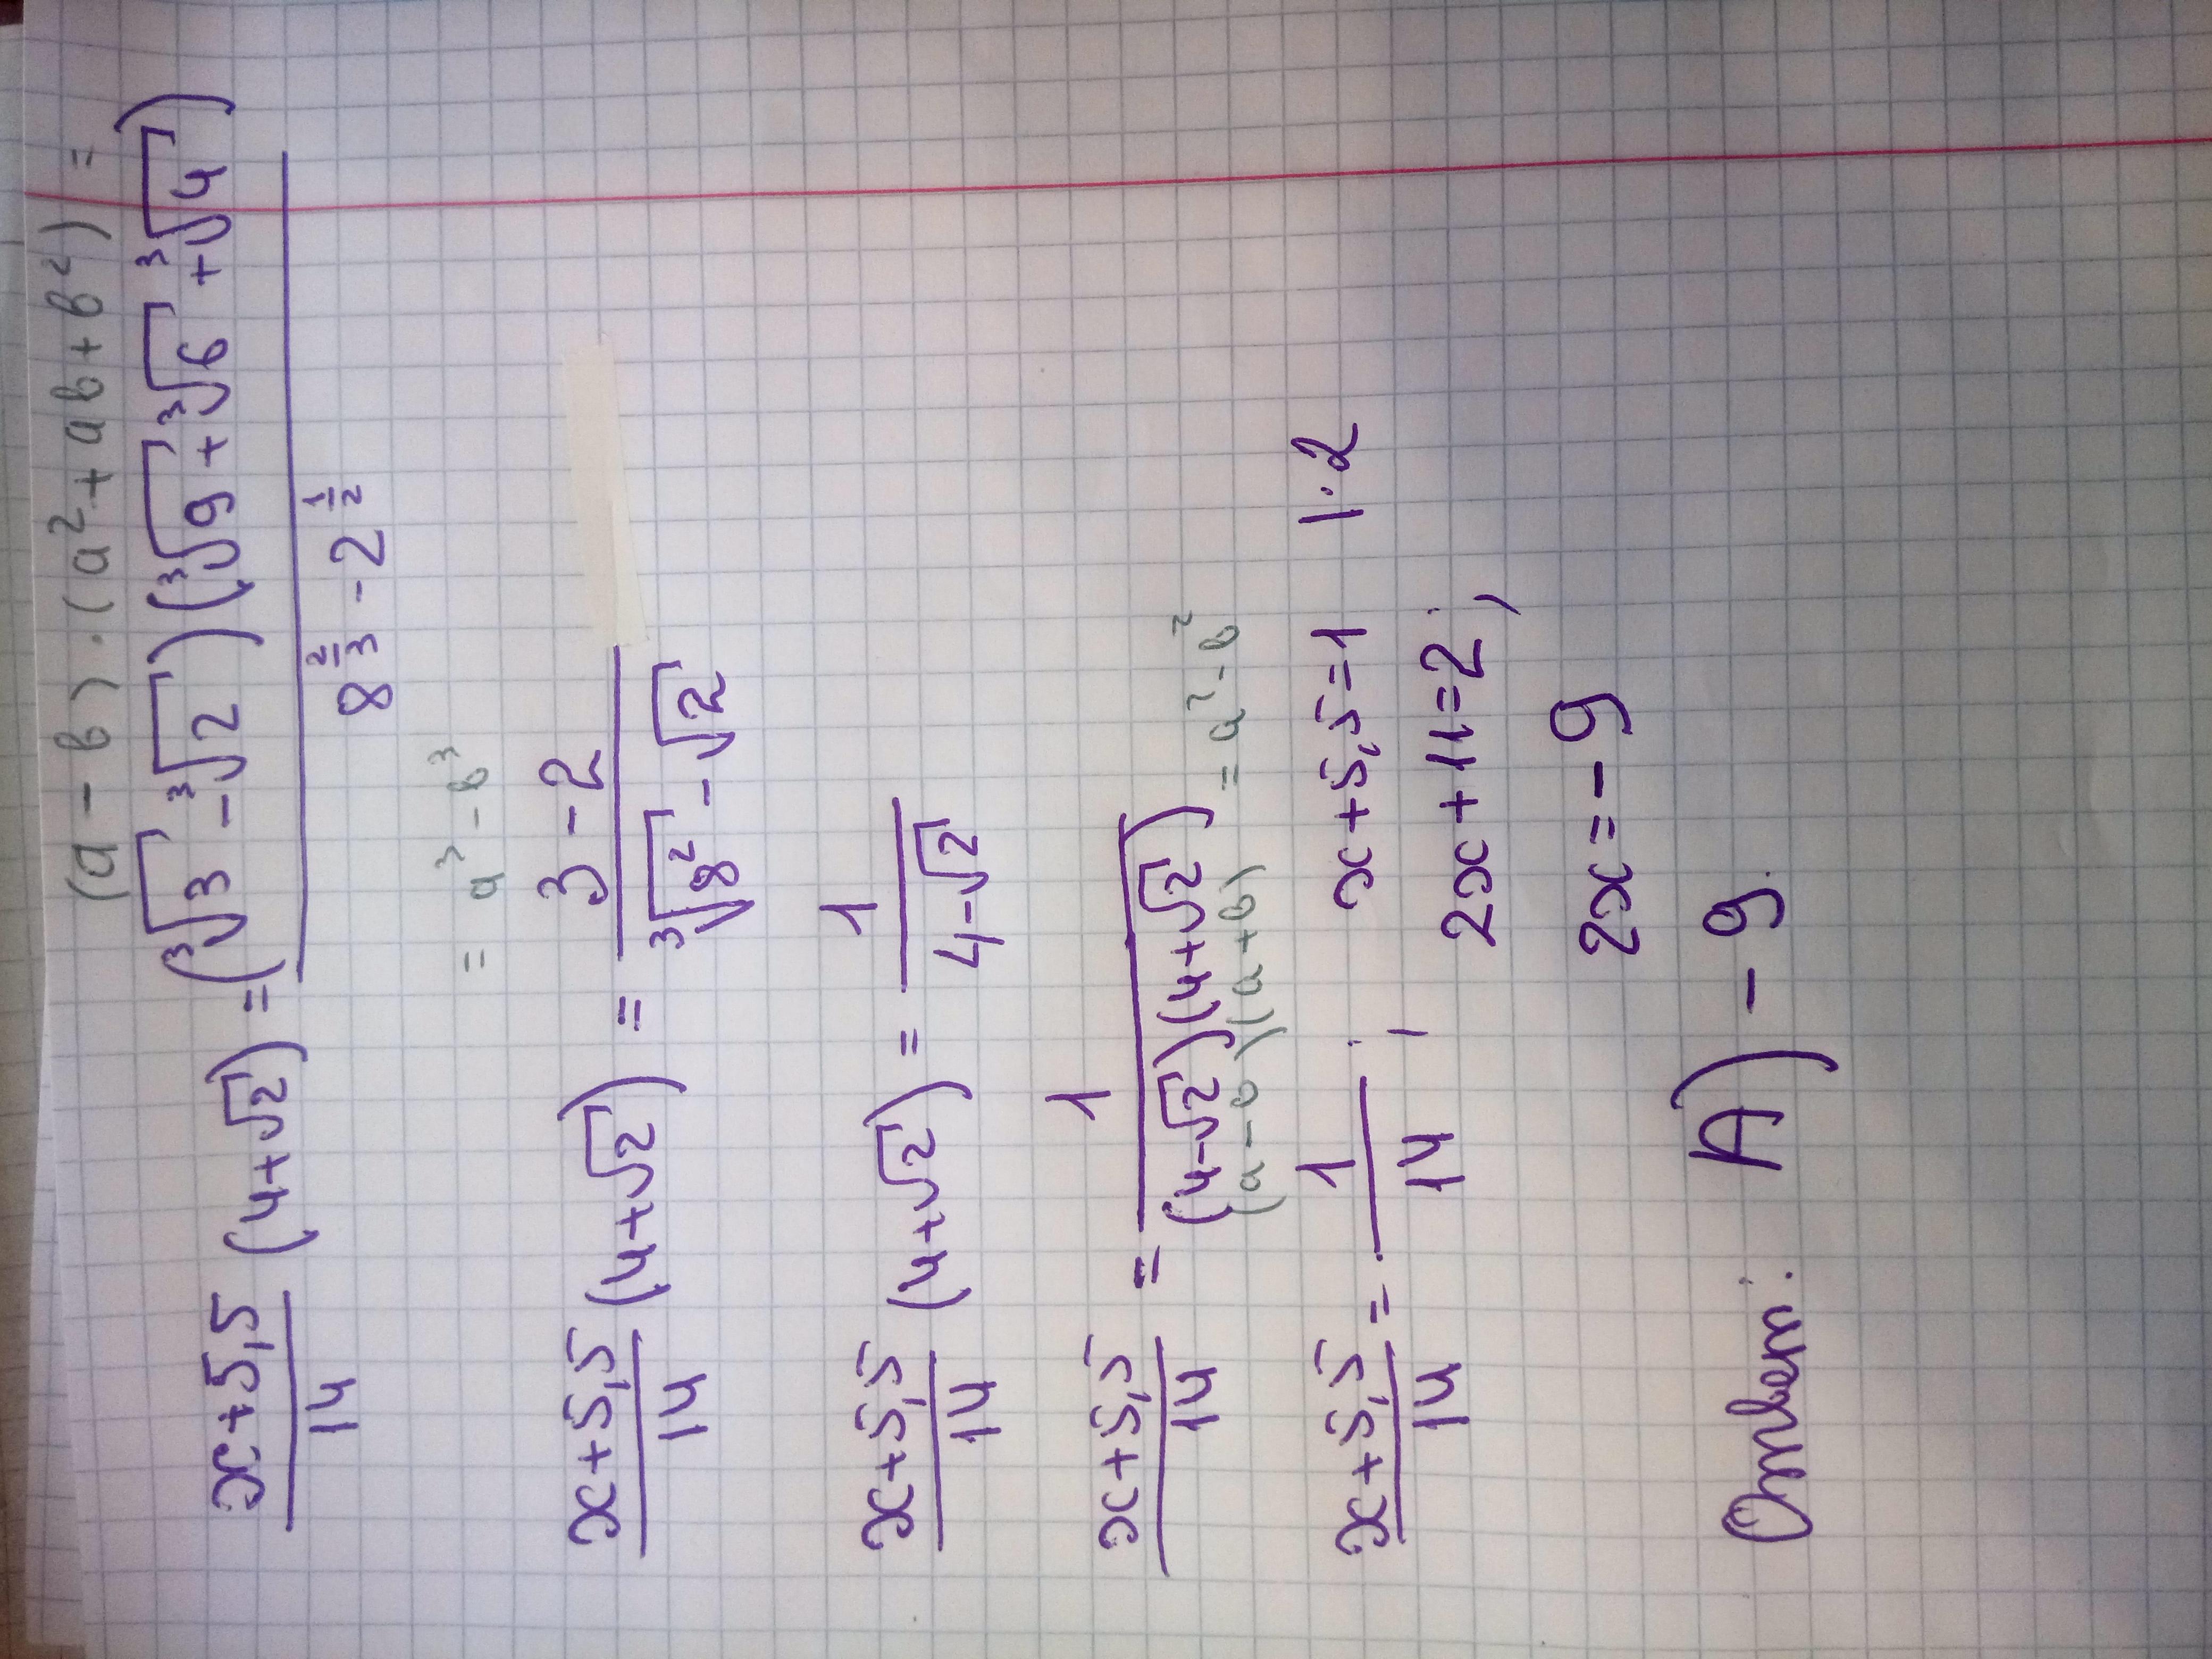 (a - b) · (a² + ab + b²) =
x+5,5/14 (4+√2) = (∛3 - ∛2)(∛9 + ∛6 + ∛4)/8^(2/3) - 2^(1/2)
= a³ - b³
x+5,5/14 (4+√2) = 3-2/∛8² - √2
x+5,5/14 (4+√2) = 1/4-√2
x+5,5/14 = 1/(4-√2)(4+√2)
(a - b)(a+b) = a² - b²
x+5,5/14 = 1/14 ; x+5,5=1 |·2
2x+11=2;
2x=-9
Ответ: А) -9.